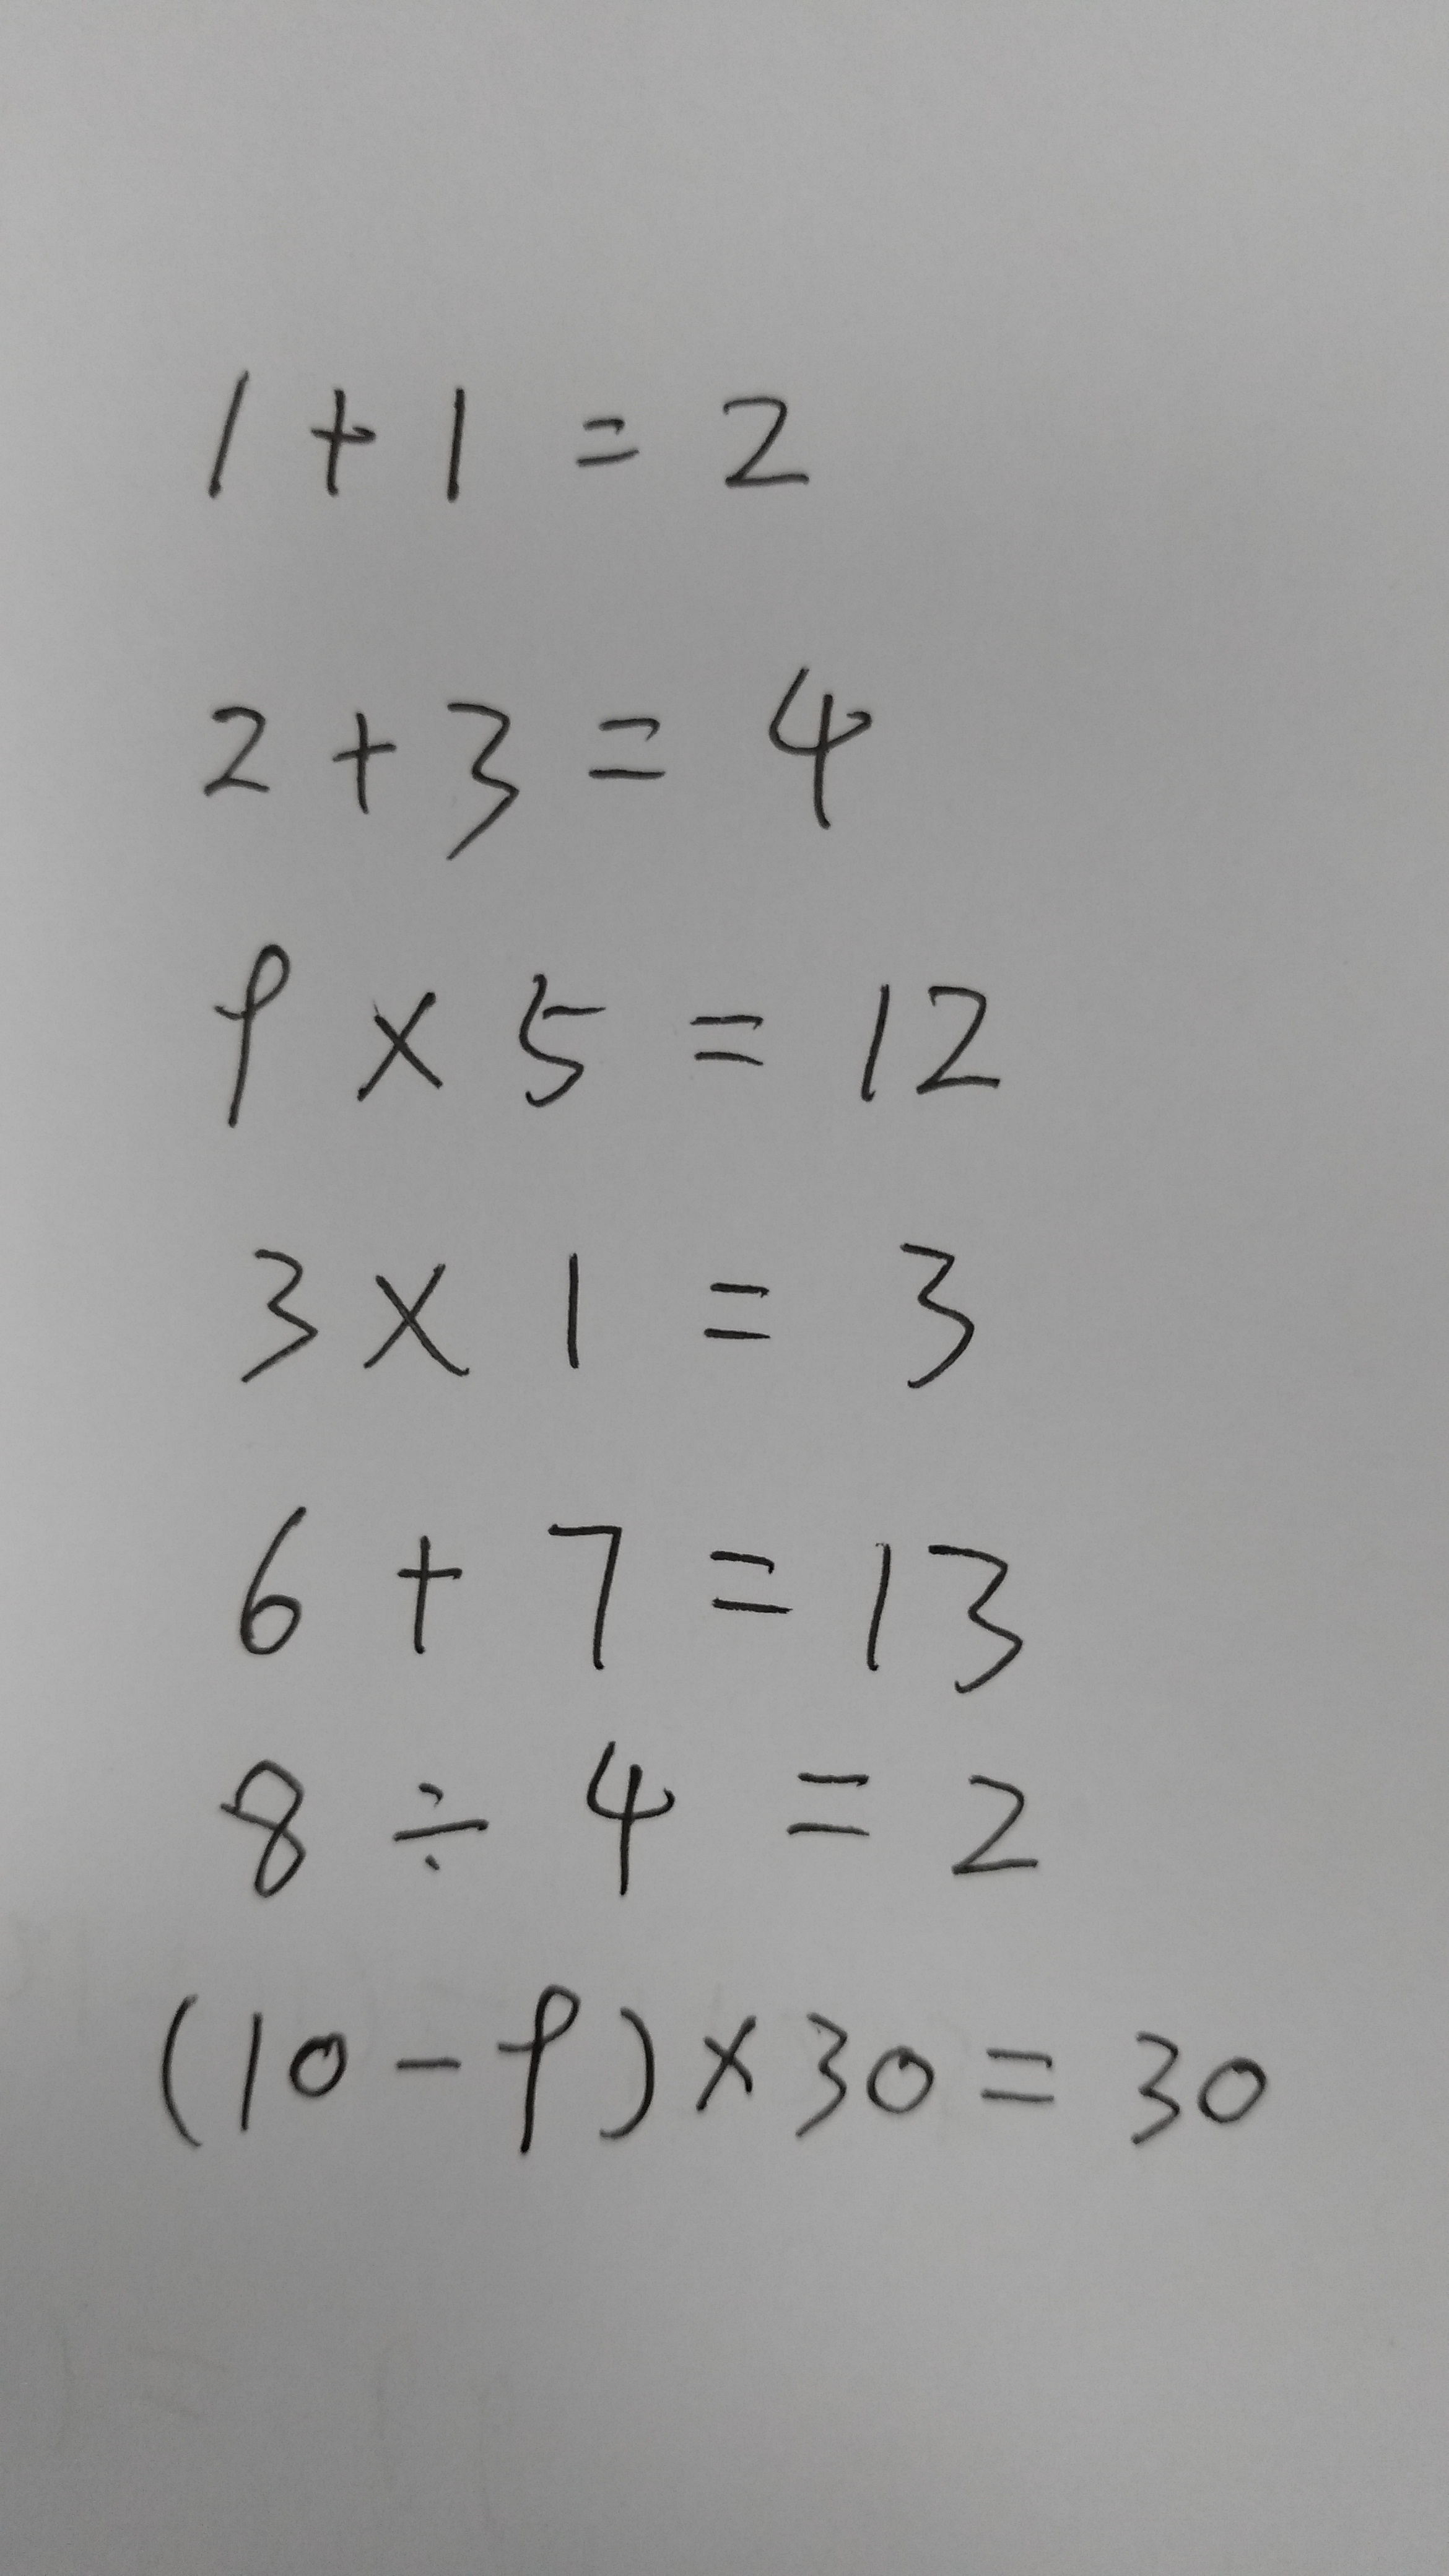 1 + 1 = 2
2 + 3 = 4
9 × 5 = 12
3 × 1 = 3
6 + 7 = 13
8 ÷ 4 = 2
(10 - 9) × 30 = 30